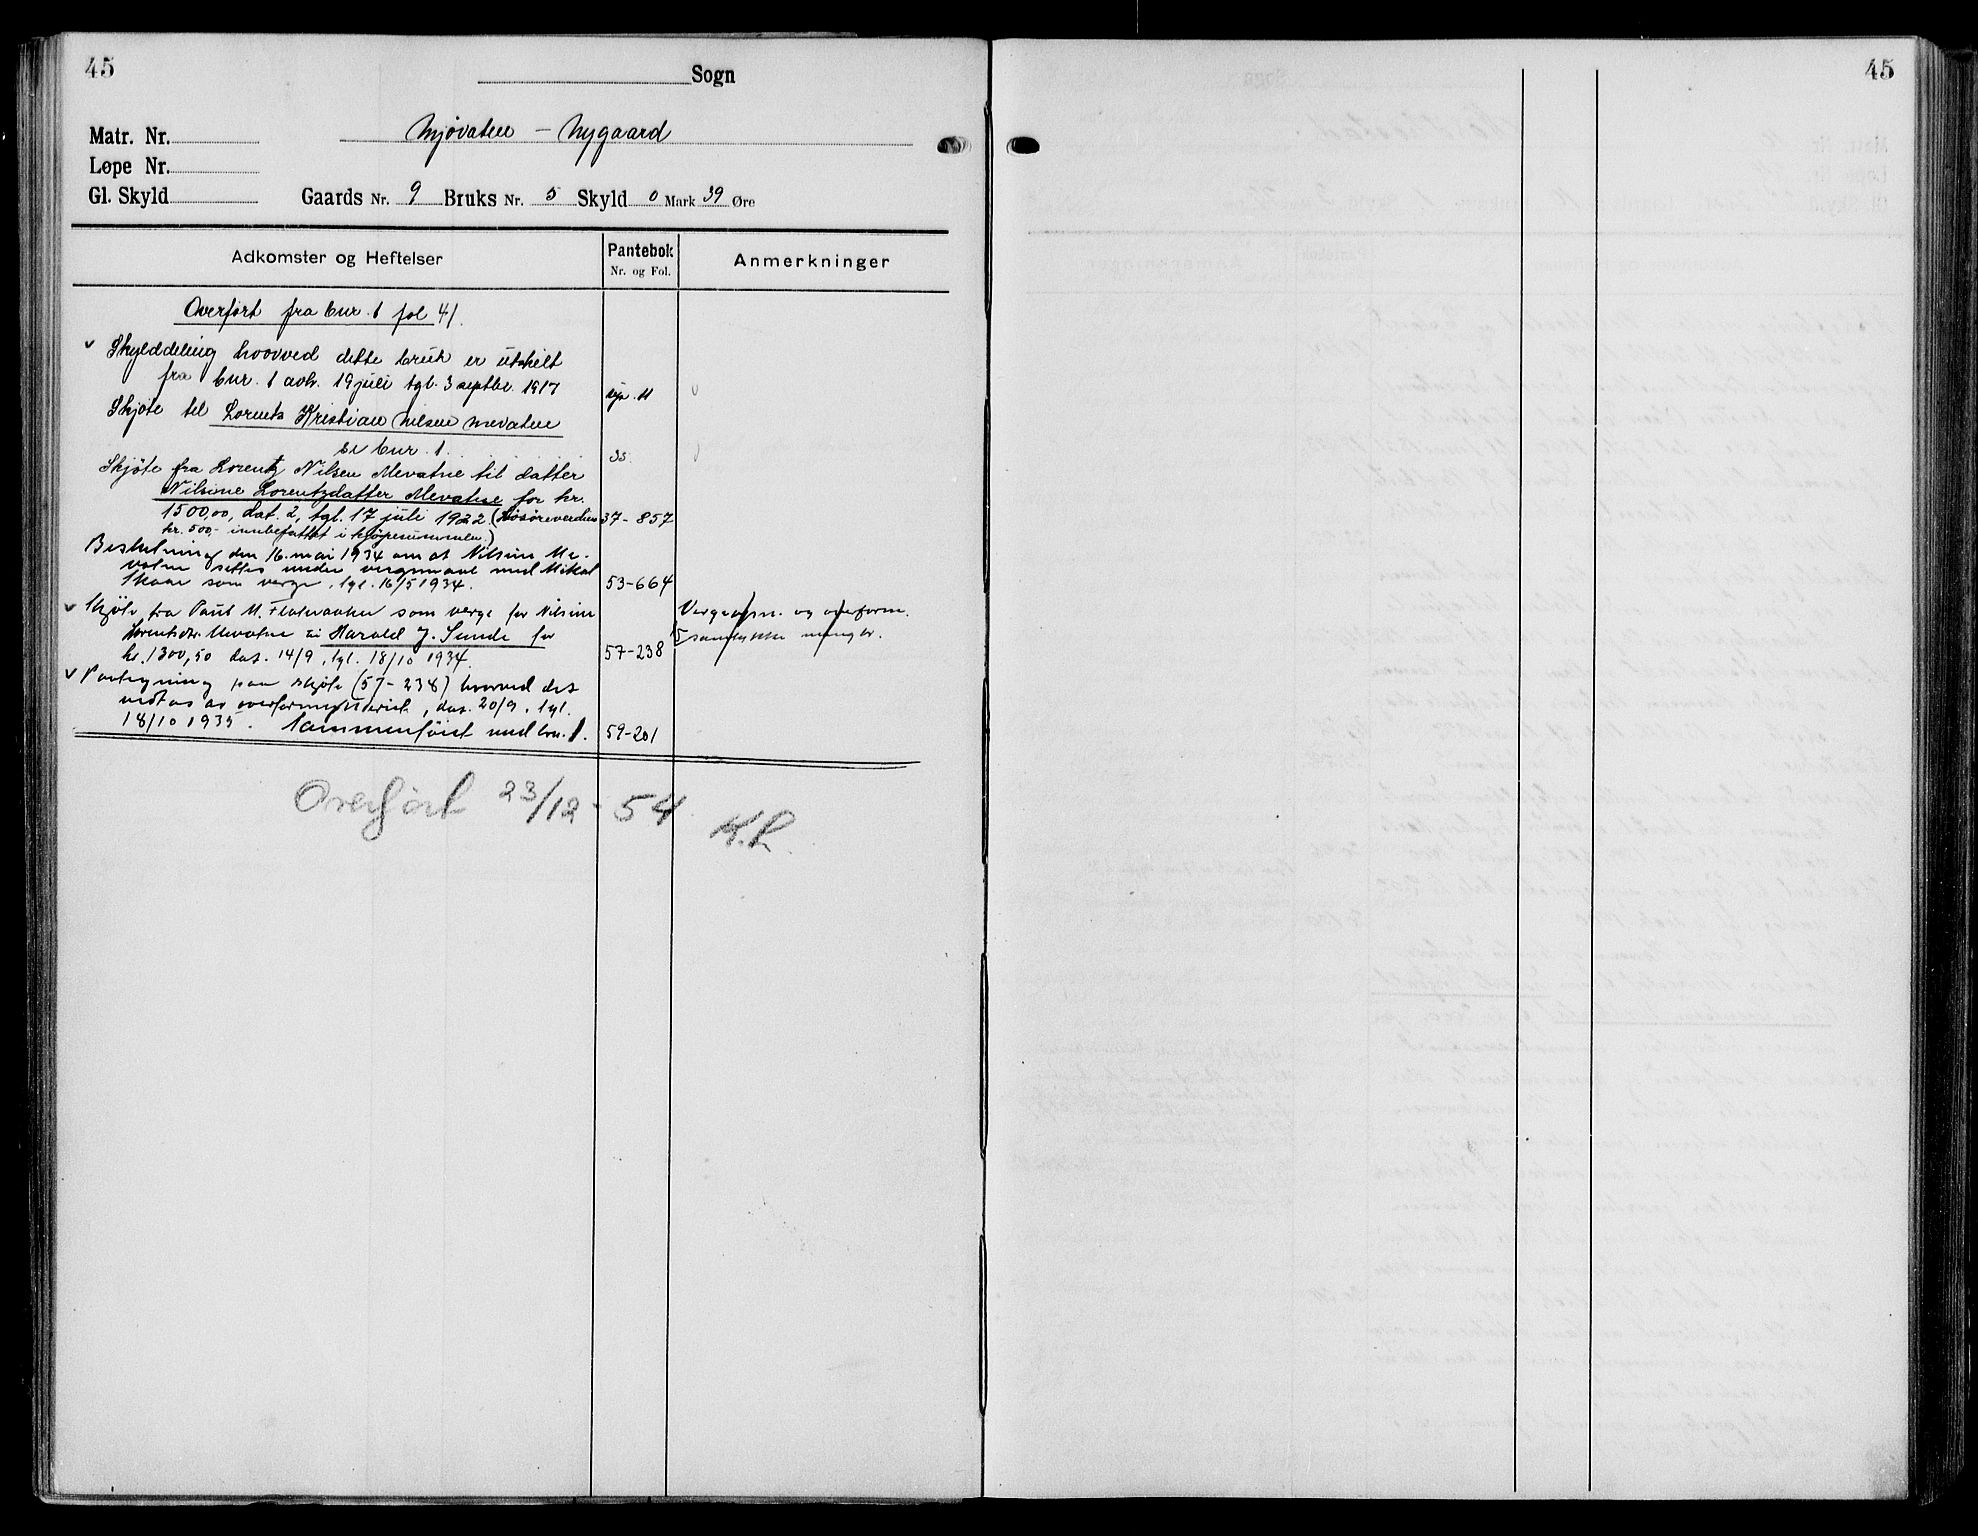 45
Sogn
Matr. Nr. Mjøvatne – Nygaard
Løpe Nr.
Gl. Skyld Gaards Nr. 9 Bruks Nr. 5 Skyld 0 Mark 39 Øre
Adkomster og Heftelser Pantebok Nr. og Fol. Anmerkninger
Overført fra bnr. 1 fol 41.
Skylddeling hvorved dette bruk er utskilt
fra bnr. 1 avh. 19 juli tgl. 3 septbr. 1917
Skjøte til Lorents Kristian Nilsen Mevatne
se bnr. 1. 33
Skjøte fra Lorentz Nilsen Mevatne til datter
Nilsine Lorentzdatter Mevatne for kr.
1500,00, dat. 2, tgl. 17 juli 1922 (Løsøreverdien 37-857
kr. 500,- innbefattet i kjøpesummen.)
Beslutning den 16. mai 1934 om at Nilsine Me-
vatne settes under vergemaal med Mikal
Skaar som verge, tgl. 16/5 1934. 53-664
Skjøte fra Paul M. som verge for Nilsine Vergeopn. og overform.
Lorentsdtr. Mevatne til Harald J. Sunde for samtykke mangler.
kr. 1300,50 dat. 14/9, tgl. 18/10 1934. 57-238
Paategning paa skjøte (57-238) hvorved det
vedtas av overformynderiet, dat. 20/9, tgl.
18/10 1935. Sammenføiet med bnr. 1. 59-201
Overført 23/12 - 54
K.L.
45